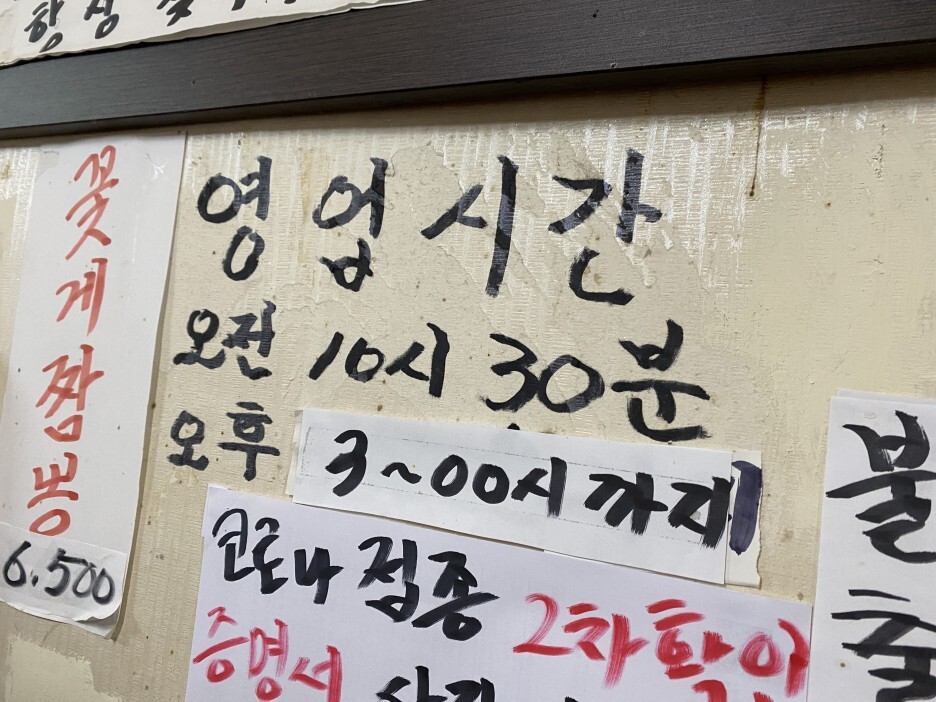 꽃게짬뽕
6.500
영업시간
오전 10시 30분
오후 3~00시 까지
코로나 접종 2차 확인
증명서
불